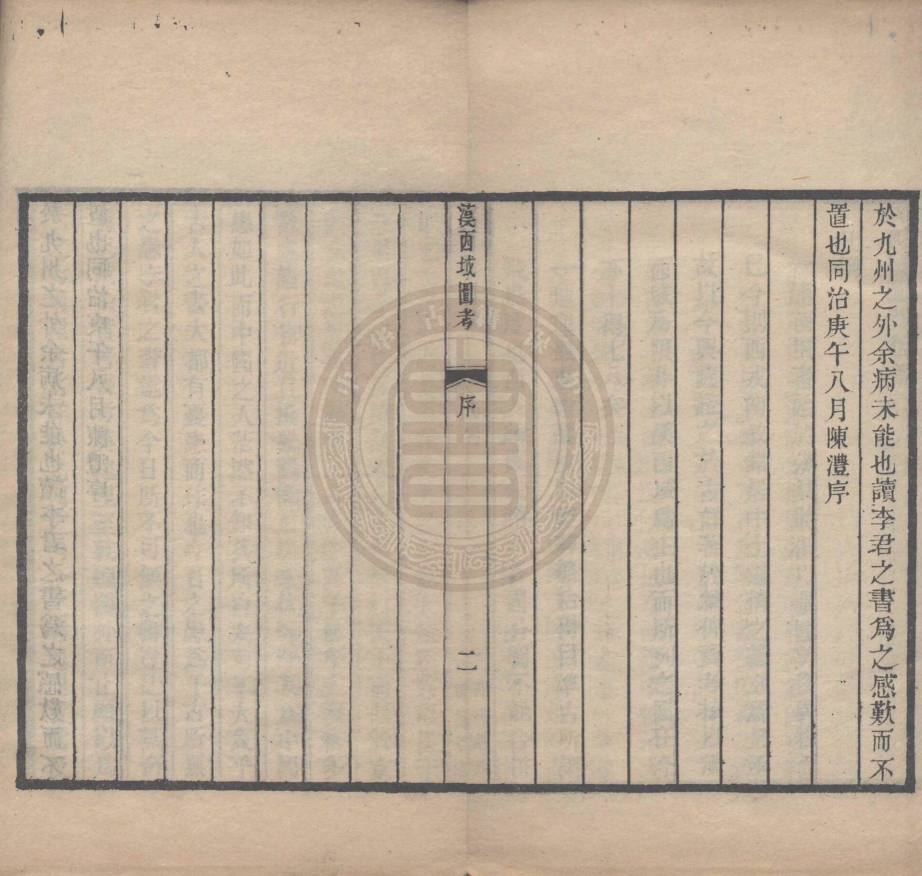 於九州之外余病未能也讀李君之書爲之感歎而不
置也同治庚午八月陳澧序
漢西域圖考
序
二